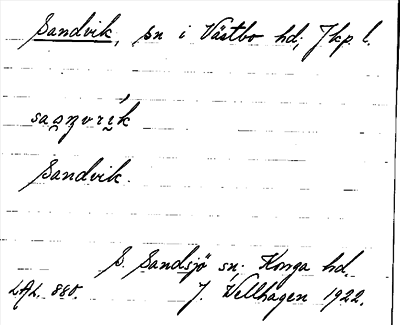 Sandvik, sn i Västbo hd, Jkp. l.
Sandvik.
S. Sandsjö sn, Konga hd.
LAL. 880. J. Vellhagen 1922.